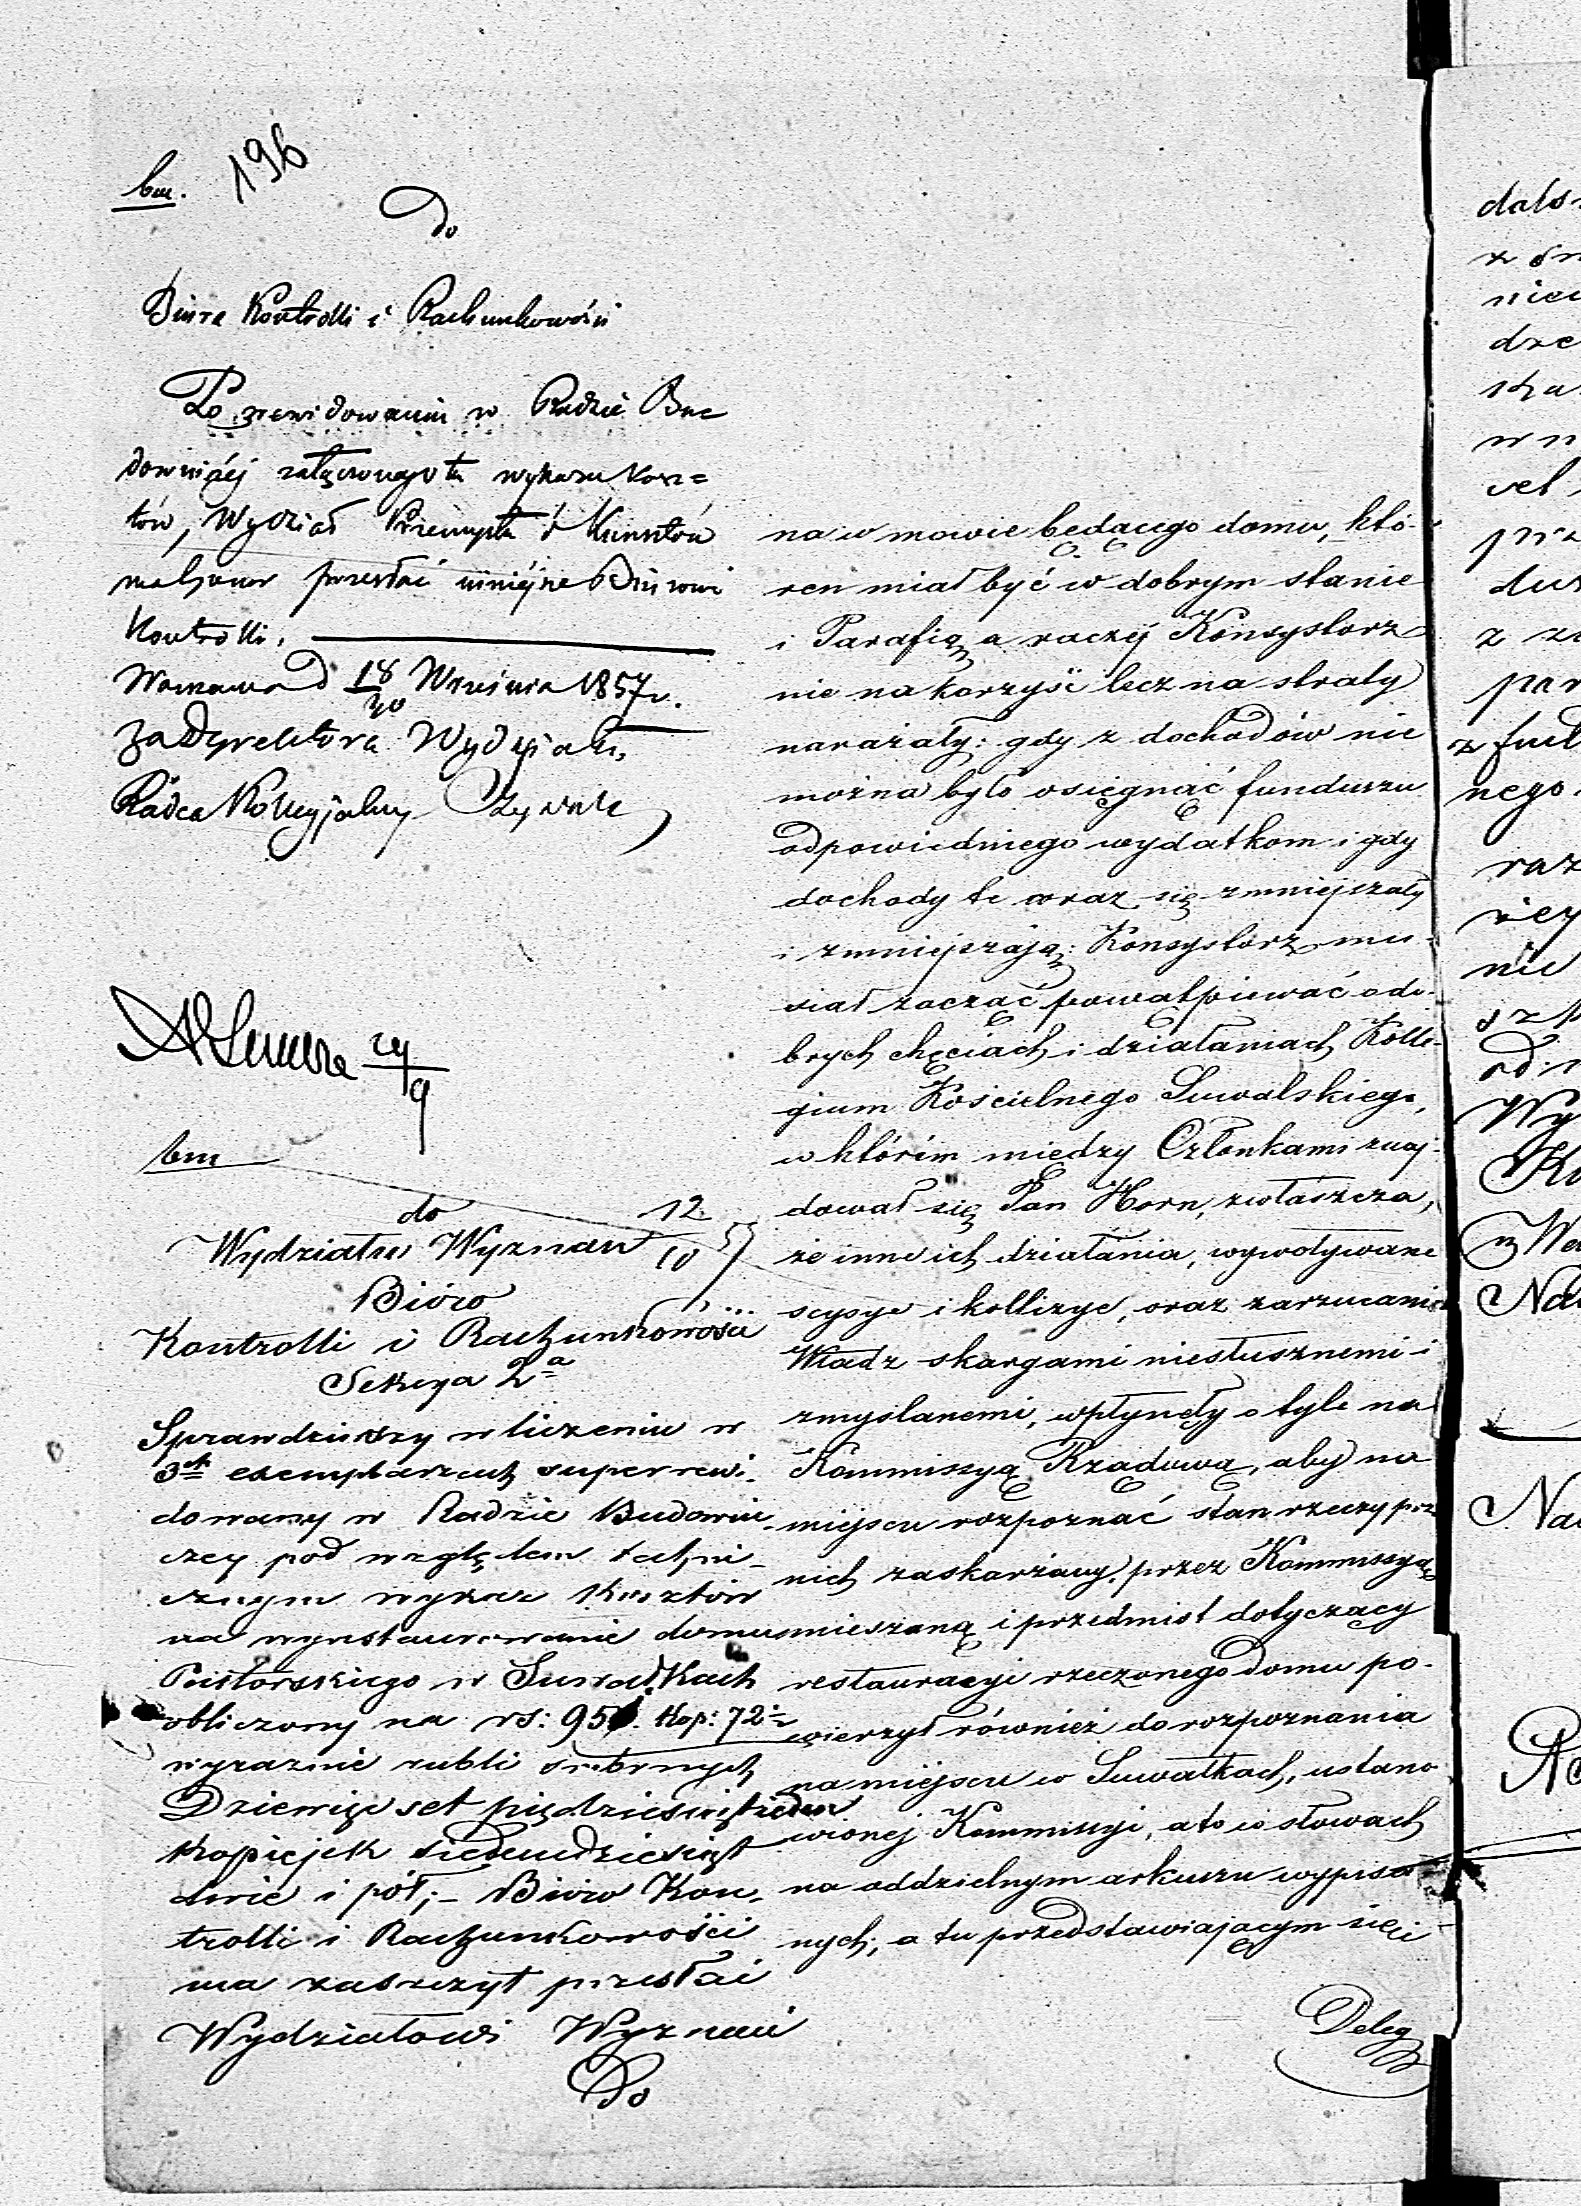 196
bm.
Do
Biura Kontrolli i Rachunkowości
Po zrewidowaniu w Radzie Bu=
downiczéj załączonego tu wykazu kosz=
tów, Wydział Przemysłu i Kunsztów
ma honor przesłać niniejsze Biórowi
Kontrolli.
Warszawa d 18/30 Września 1857 r.
Za Dyrektora Wydziału,
Radca Kollegjalny
bm
do
Wydziału Wyznań 12/10 57
Bióro
Kontrolli i Rachunkowości
Sekcya 2a
Sprawdziwszy w liczeniu w
3ch exemplarzach superrewi-
dowany w Radzie Budowni-
czej pod względem techni-
cznym wykaz kosztów
na wyrestaurowanie domu
Pastorskiego w Suwałkach
obliczony na rs: 951. kop: 72½
wyraźnie rubli srebrnych
Dziewięćset pięćdziesiąt jeden
kopiejek siedmdziesiąt
dwie i pół; – Bióro Kon-
trolli i Rachunkowości
ma zaszczyt przesłać
Wydziałowi Wyznań
Do
na w mowie będącego domu, któ-
ren miał być w dobrym stanie
i Parafią a raczéj Konsystorz
nie na korzyść lecz na straty
narażały: gdy z dochodów nie
można było osięgnąć funduszu
odpowiedniego wydatkom i gdy
dochody te coraz się zmniejszały
i zmniejszają: Konsystorz mu-
siał zacząć powątpiewać o do-
brych chęciach i działaniach Kolle-
gium Kościelnego Suwalskiego,
w którém między Członkami znaj-
dował się Pan Horn, zwłaszcza,
że inne ich działania, wywoływane
scysye i kollizye, oraz zarzucanie
Władz skargami niesłusznemi i
zmyślanemi, wpłynęły o tyle na
Kommissyą Rządową, aby na
miejscu rozpoznać stan rzeczy prz
nich zaskarżany, przez Kommissyą
mieszaną i przedmiot dotyczący
restauracyi rzeczonego domu po-
wierzył również do rozpoznania
na miejscu w Suwałkach, ustano
wionej Kommissyi, a to w słowach
na oddzielnym arkuszu wypisa
nych; a tu przedstawiającym się i
Deleg